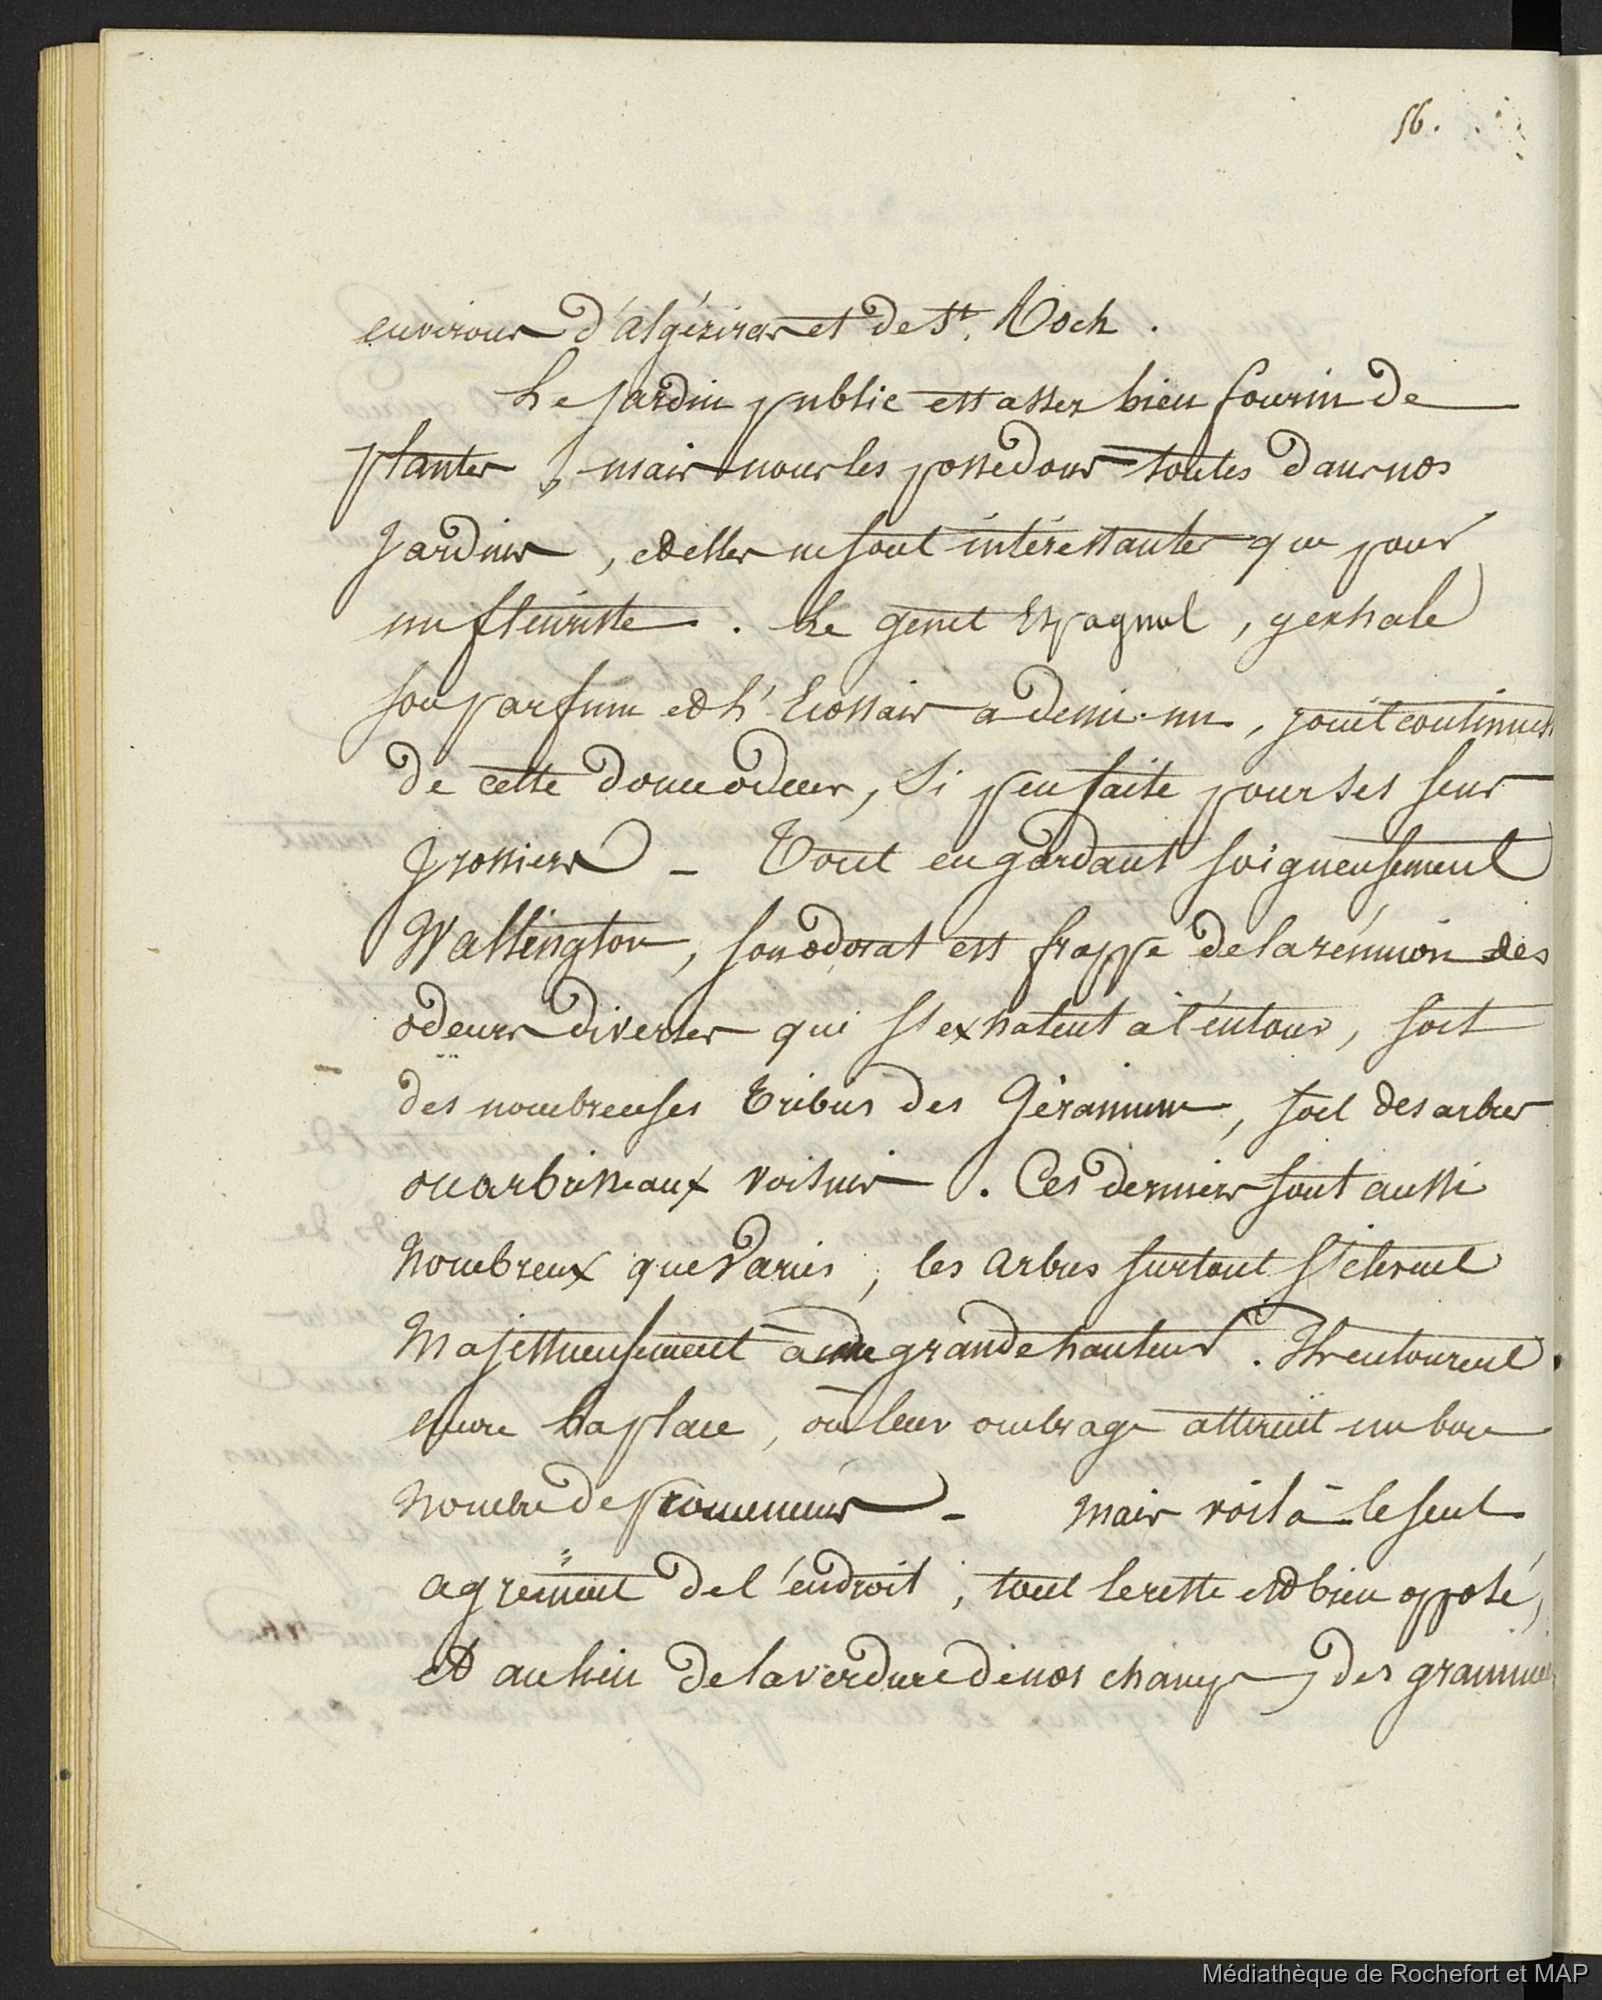 56.
environs d'algésiras et de St. Roch.
Le jardin public est assez bien fourni de
plantes, mais nous les possedons toutes dans nos
jardins, et elles ne sont intéressantes que pour
un fleuriste. Le genet Espagnol, y exhale
son parfum et L'Ecossais a demi-nu, jouit
de cette douce odeur, si peu faite pour ses sens
grossiers - Tout en gardant soigneusement
Wallington, son odorat est frappé de la réunion des
odeurs diverses qui s'exhalent a l'entour, soit
des nombreuses tribus des Géranium, soit des arbres
ou arbrisseaux voisins. Ces derniers sont aussi
nombreux que variés, les arbres surtout s'élevent
Majestueusement à une grande hauteur. Ils entourent
encore La place, où leur ombrage attire un bon
nombre de promeneurs - Mais voilà le seul
agrément de l'endroit, tout le reste est bien opposé,
et au lieu de la verdure de nos champs, des
Médiathèque de Rochefort et MAP